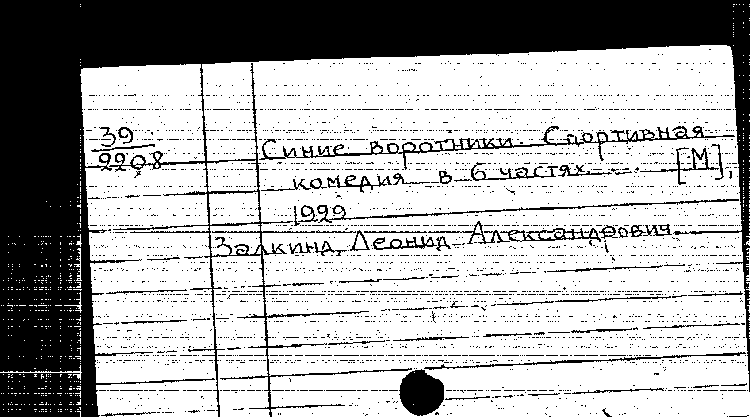 39
2208
Синие воротники. Спортивная
комедия в 6 частях .... [М],
1929
Залкинд, Леонид Александрович.